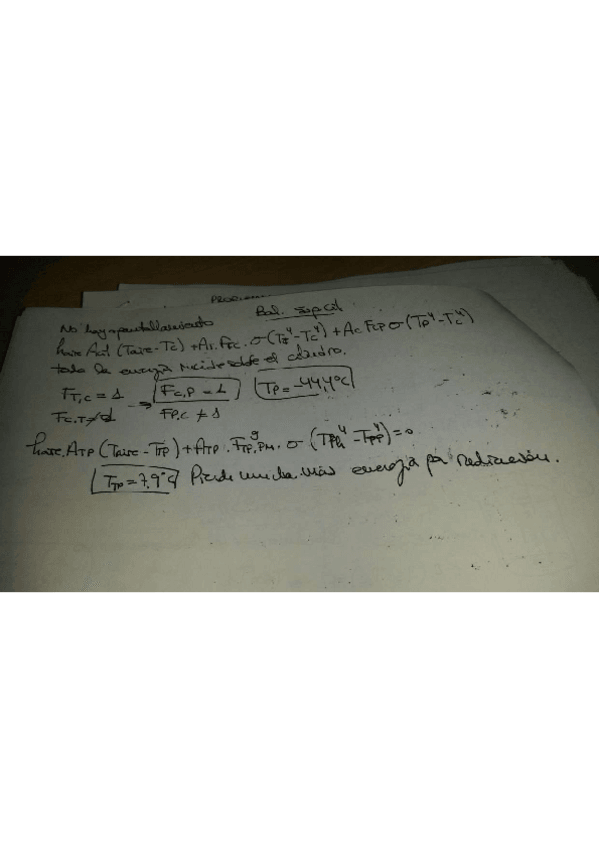 Problema
Bal. Sup. Cil
No hay apantallamiento
haire Acil (Taire - Tc) + A1. FTC. σ (TT⁴ - Tc⁴) + Ac FCP σ (TP⁴ - Tc⁴)
toda la energía incide sobre el cilindro.
FT,C = 1 → FC,P = 1 TP = -44,4°C
FC,T ≠ 1 FP,C ≠ 1
haire. ATP (Taire - TTP) + ATP. FTP,PM. σ (TPM⁴ - TTP⁴) = 0
TTP = 7,9°C Pierde mucha más energía por radiación.